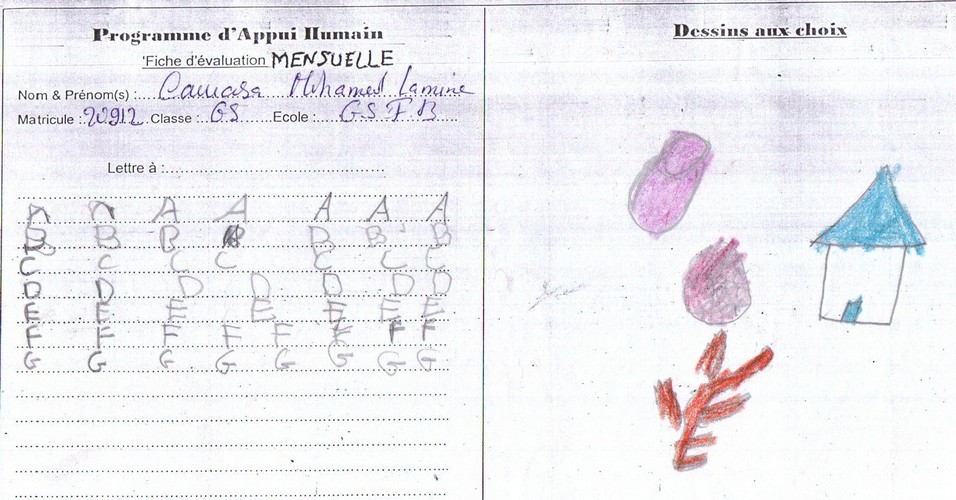 Programme d'Appui Humain
'Fiche d'évaluation MENSUELLE
Nom & Prénom(s) : Camara Mohamed Lamine
Matricule : 20912 Classe : GS Ecole : G S F B
Lettre à :
A A A A A A A
B B B B B B B
C C C C C C C
D D D D D D D
E E E E E E E
F F F F F E F F
G G G G G G G G
Dessins aux choix